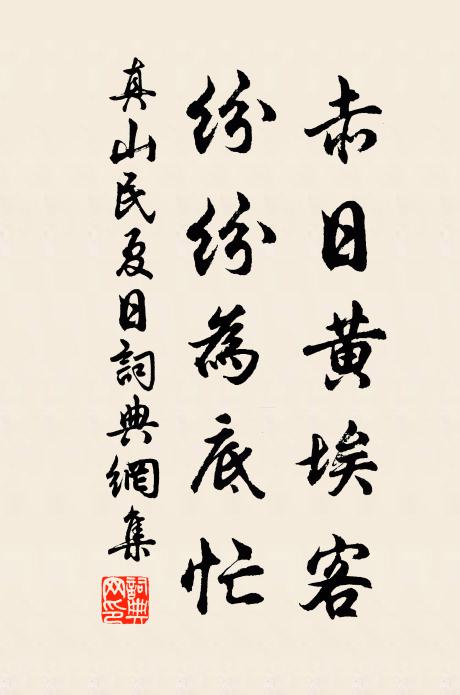 赤日黃埃客
紛紛為底忙
真山民夏日詞典網集
詞典網印